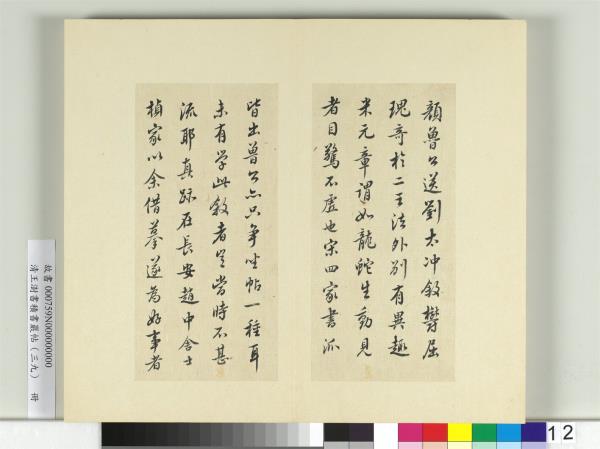 顏魯公送劉太沖敘欝屈
瑰竒於二王法外別有異趣
米元章謂如龍蛇生動見
者目驚不虛也宋四家書派
皆出魯公亦只爭坐帖一種耳
未有學此敘者豈當時不甚
流耶真跡在長安趙中舍士
楨家以余借摹遂為好事者
故書 000759N000000000
清王澍書積書巖帖（三九） 冊
12